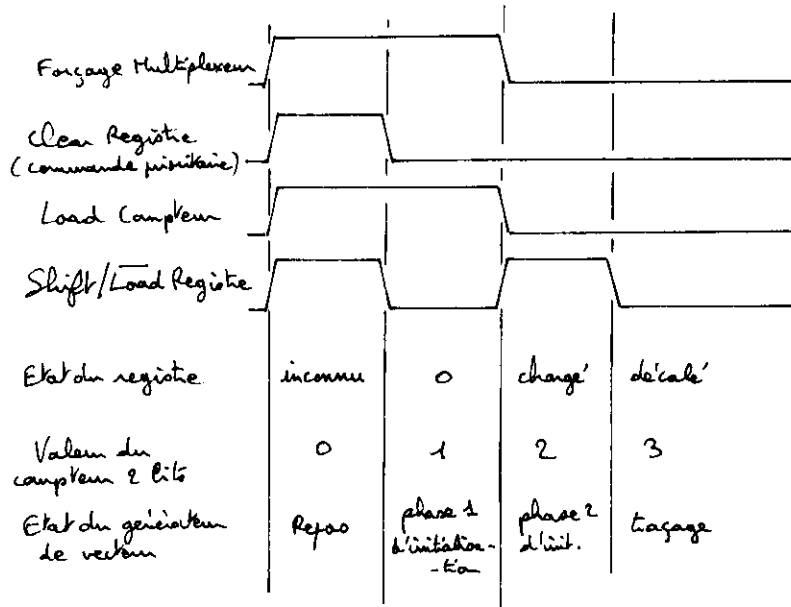 Forçage Multiplexeur
Clear Registre
(commande prioritaire)
Load Compteur
Shift/Load Registre
Etat du registre inconnu 0 chargé décalé
Valeur du
compteur 2 bits 0 1 2 3
Etat du générateur
de vecteur Repos phase 1
d'initialisa-
-tion phase 2
d'init. traçage